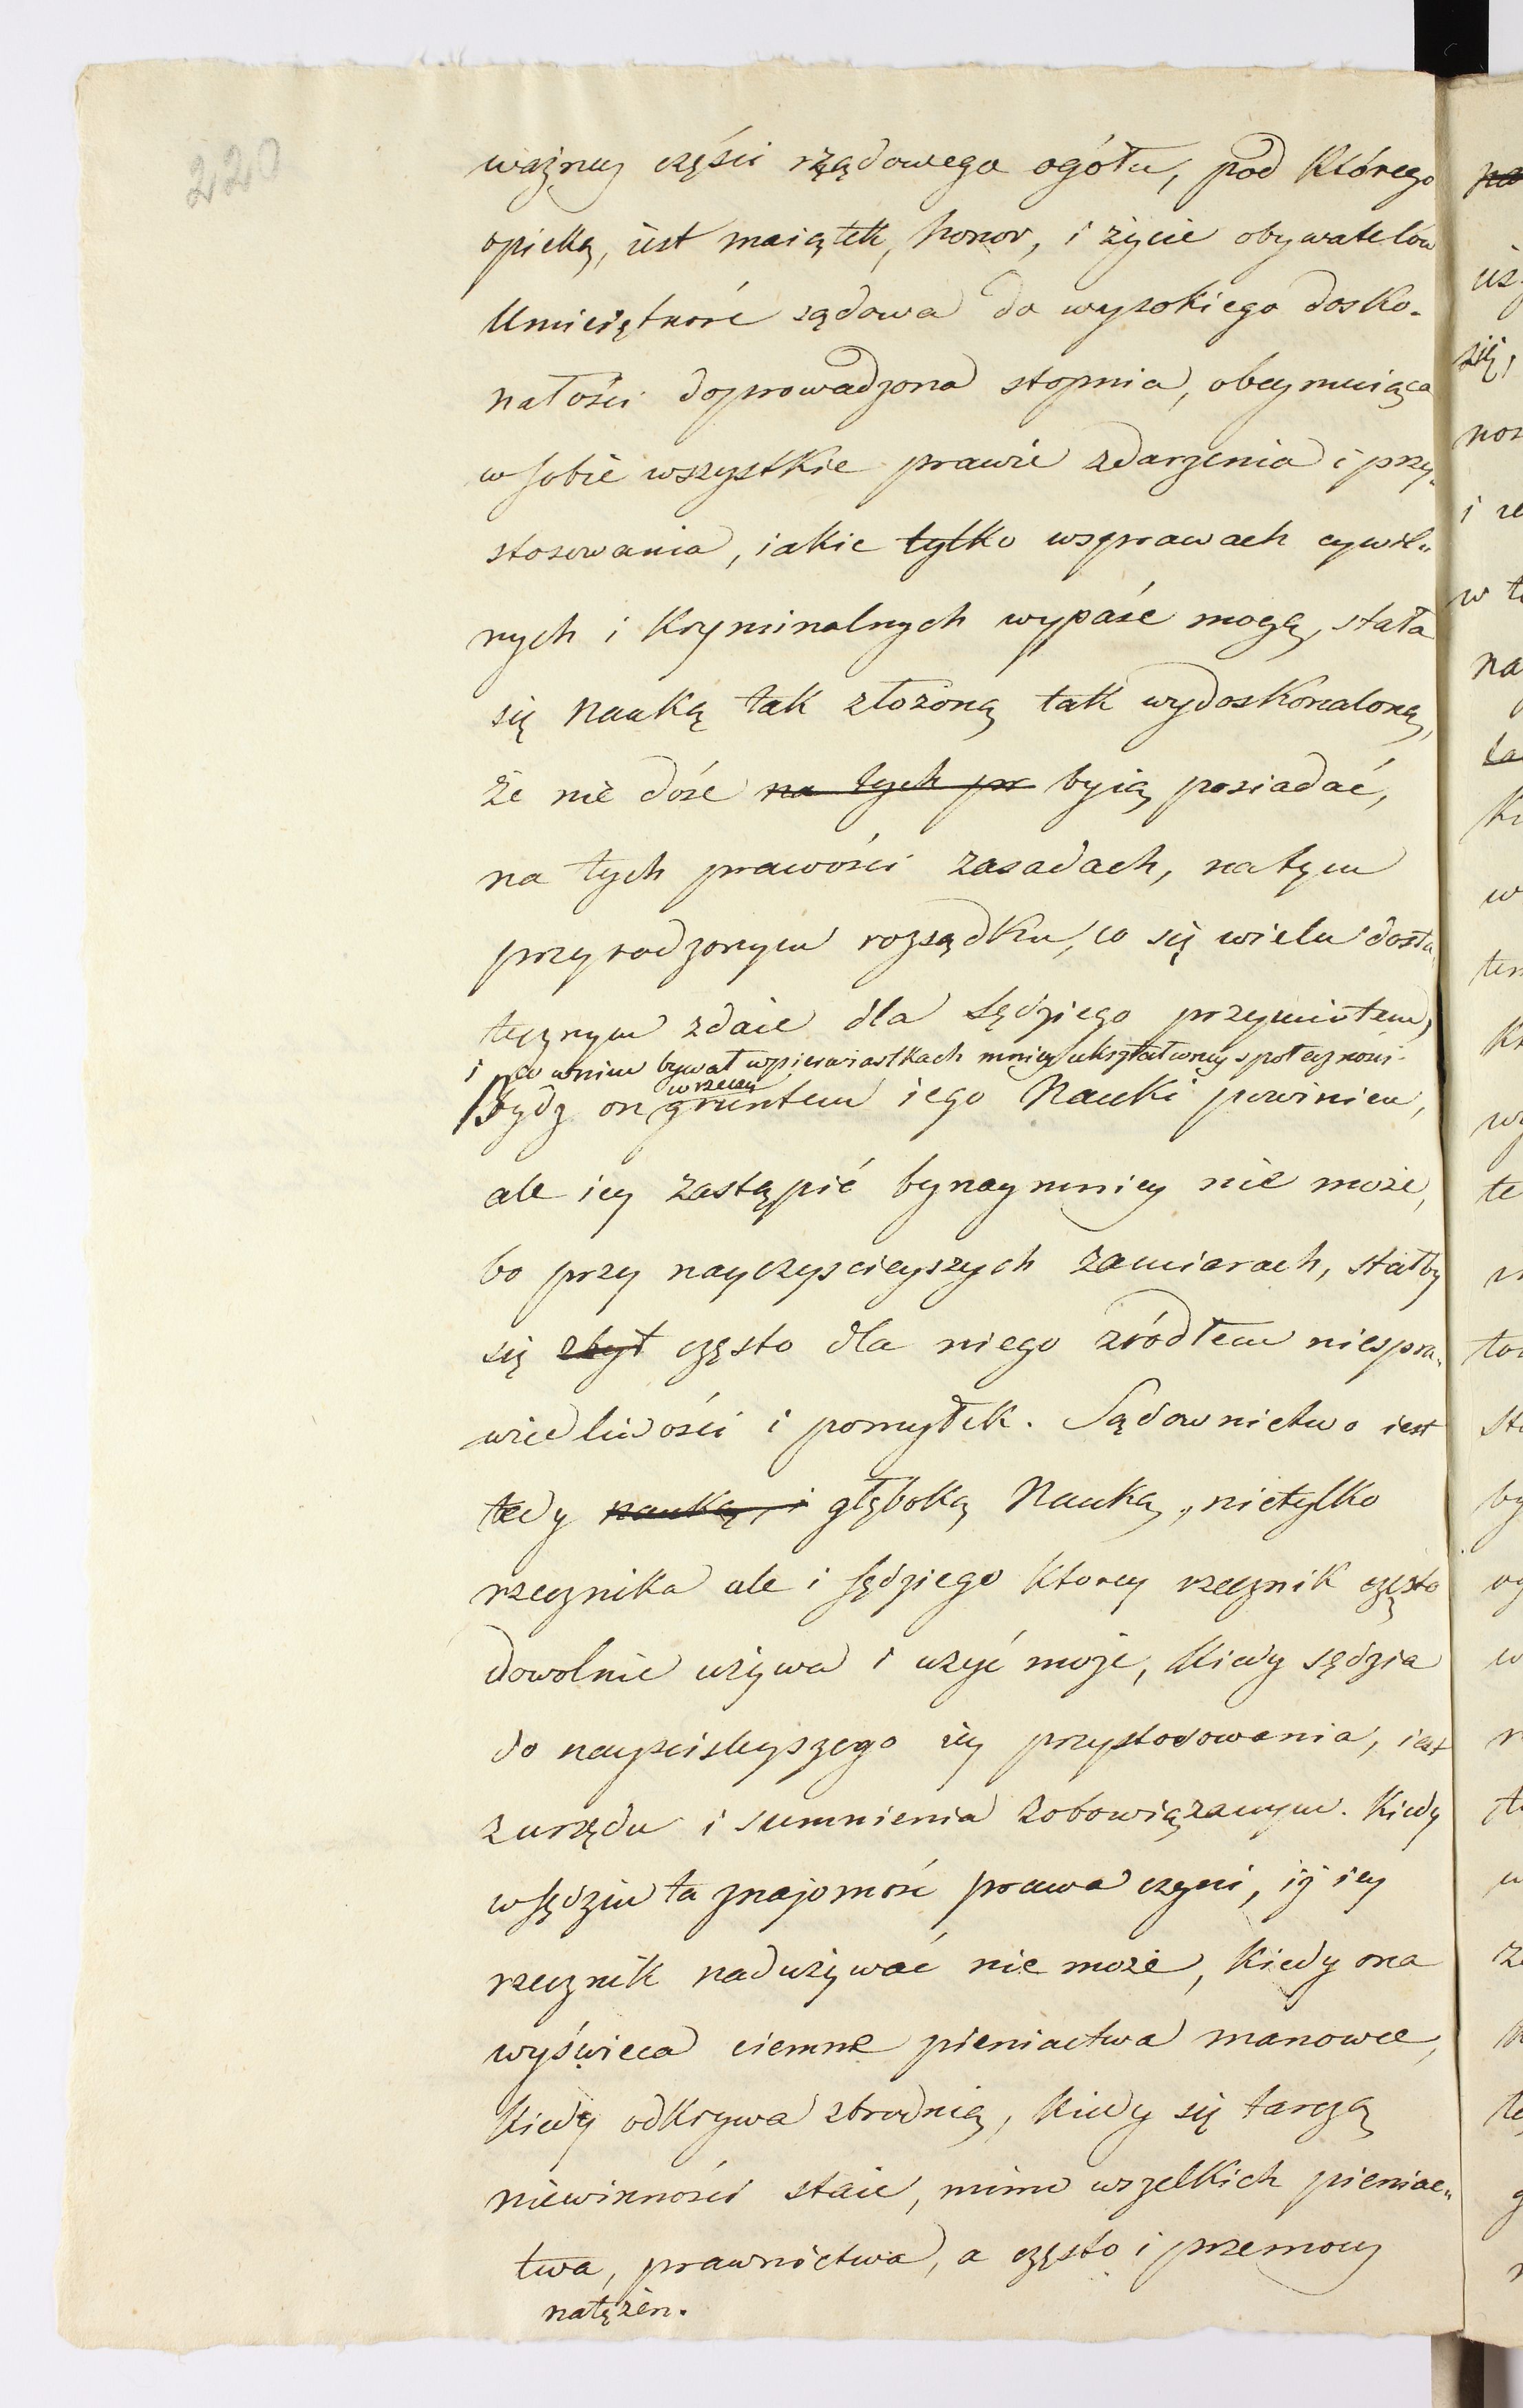 220
ważney części rządowego ogółu, pod którego
opieką, iest maiątek, honor, i życie obywatelów
Umieiętność sądowa do wysokiego dosko-
nałości doprowadzona stopnia, obeymuiąca
w sobie wszystkie prawie zdarzenia i przy-
stosowania, iakie tylko w sprawach cywil-
nych i kryminalnych wypaść mogą, stała
się nauką tak złożoną tak wydoskonaloną,
że nie dość na tych pr byią posiadać,
na tych prawości zasadach, na tym
przyrodzonym rozsądku, co się wielu dosta-
tecznym zdaie dla sędziego przymiotem,
i w nim bywał w pierwiastkach mniey ukształconey społeczności.
w rzeczy
Bydz on gruntem iego Nauki powinien,
ale iey zastąpić bynaymniey nie może,
bo przy nayczyscieyszych zamiarach, stałby
się zbyt często dla niego zródłem niespra-
wiedliwości i pomyłek. Sądownictwo iest
tedy nauką, i głęboką Nauką, nietylko
rzecznika ale i sędziego ktorey rzecznik często
dowolnie używa i użyć może, kiedy sędzia
do nayściśleyszego iey przystosowania, iest
z urzędu i sumnienia zobowiązanym. Kiedy
w sędziu ta znajomość prawa czyni, iż iey
rzecznik nadużywać nie może, kiedy ona
wyświeca ciemne pieniactwa manowce,
kiedy odkrywa zbrodnią, kiedy się tarczą
niewinności staie, mimo wszelkich pieniac-
twa, prawnictwa, a często i przemocy
natężeń.